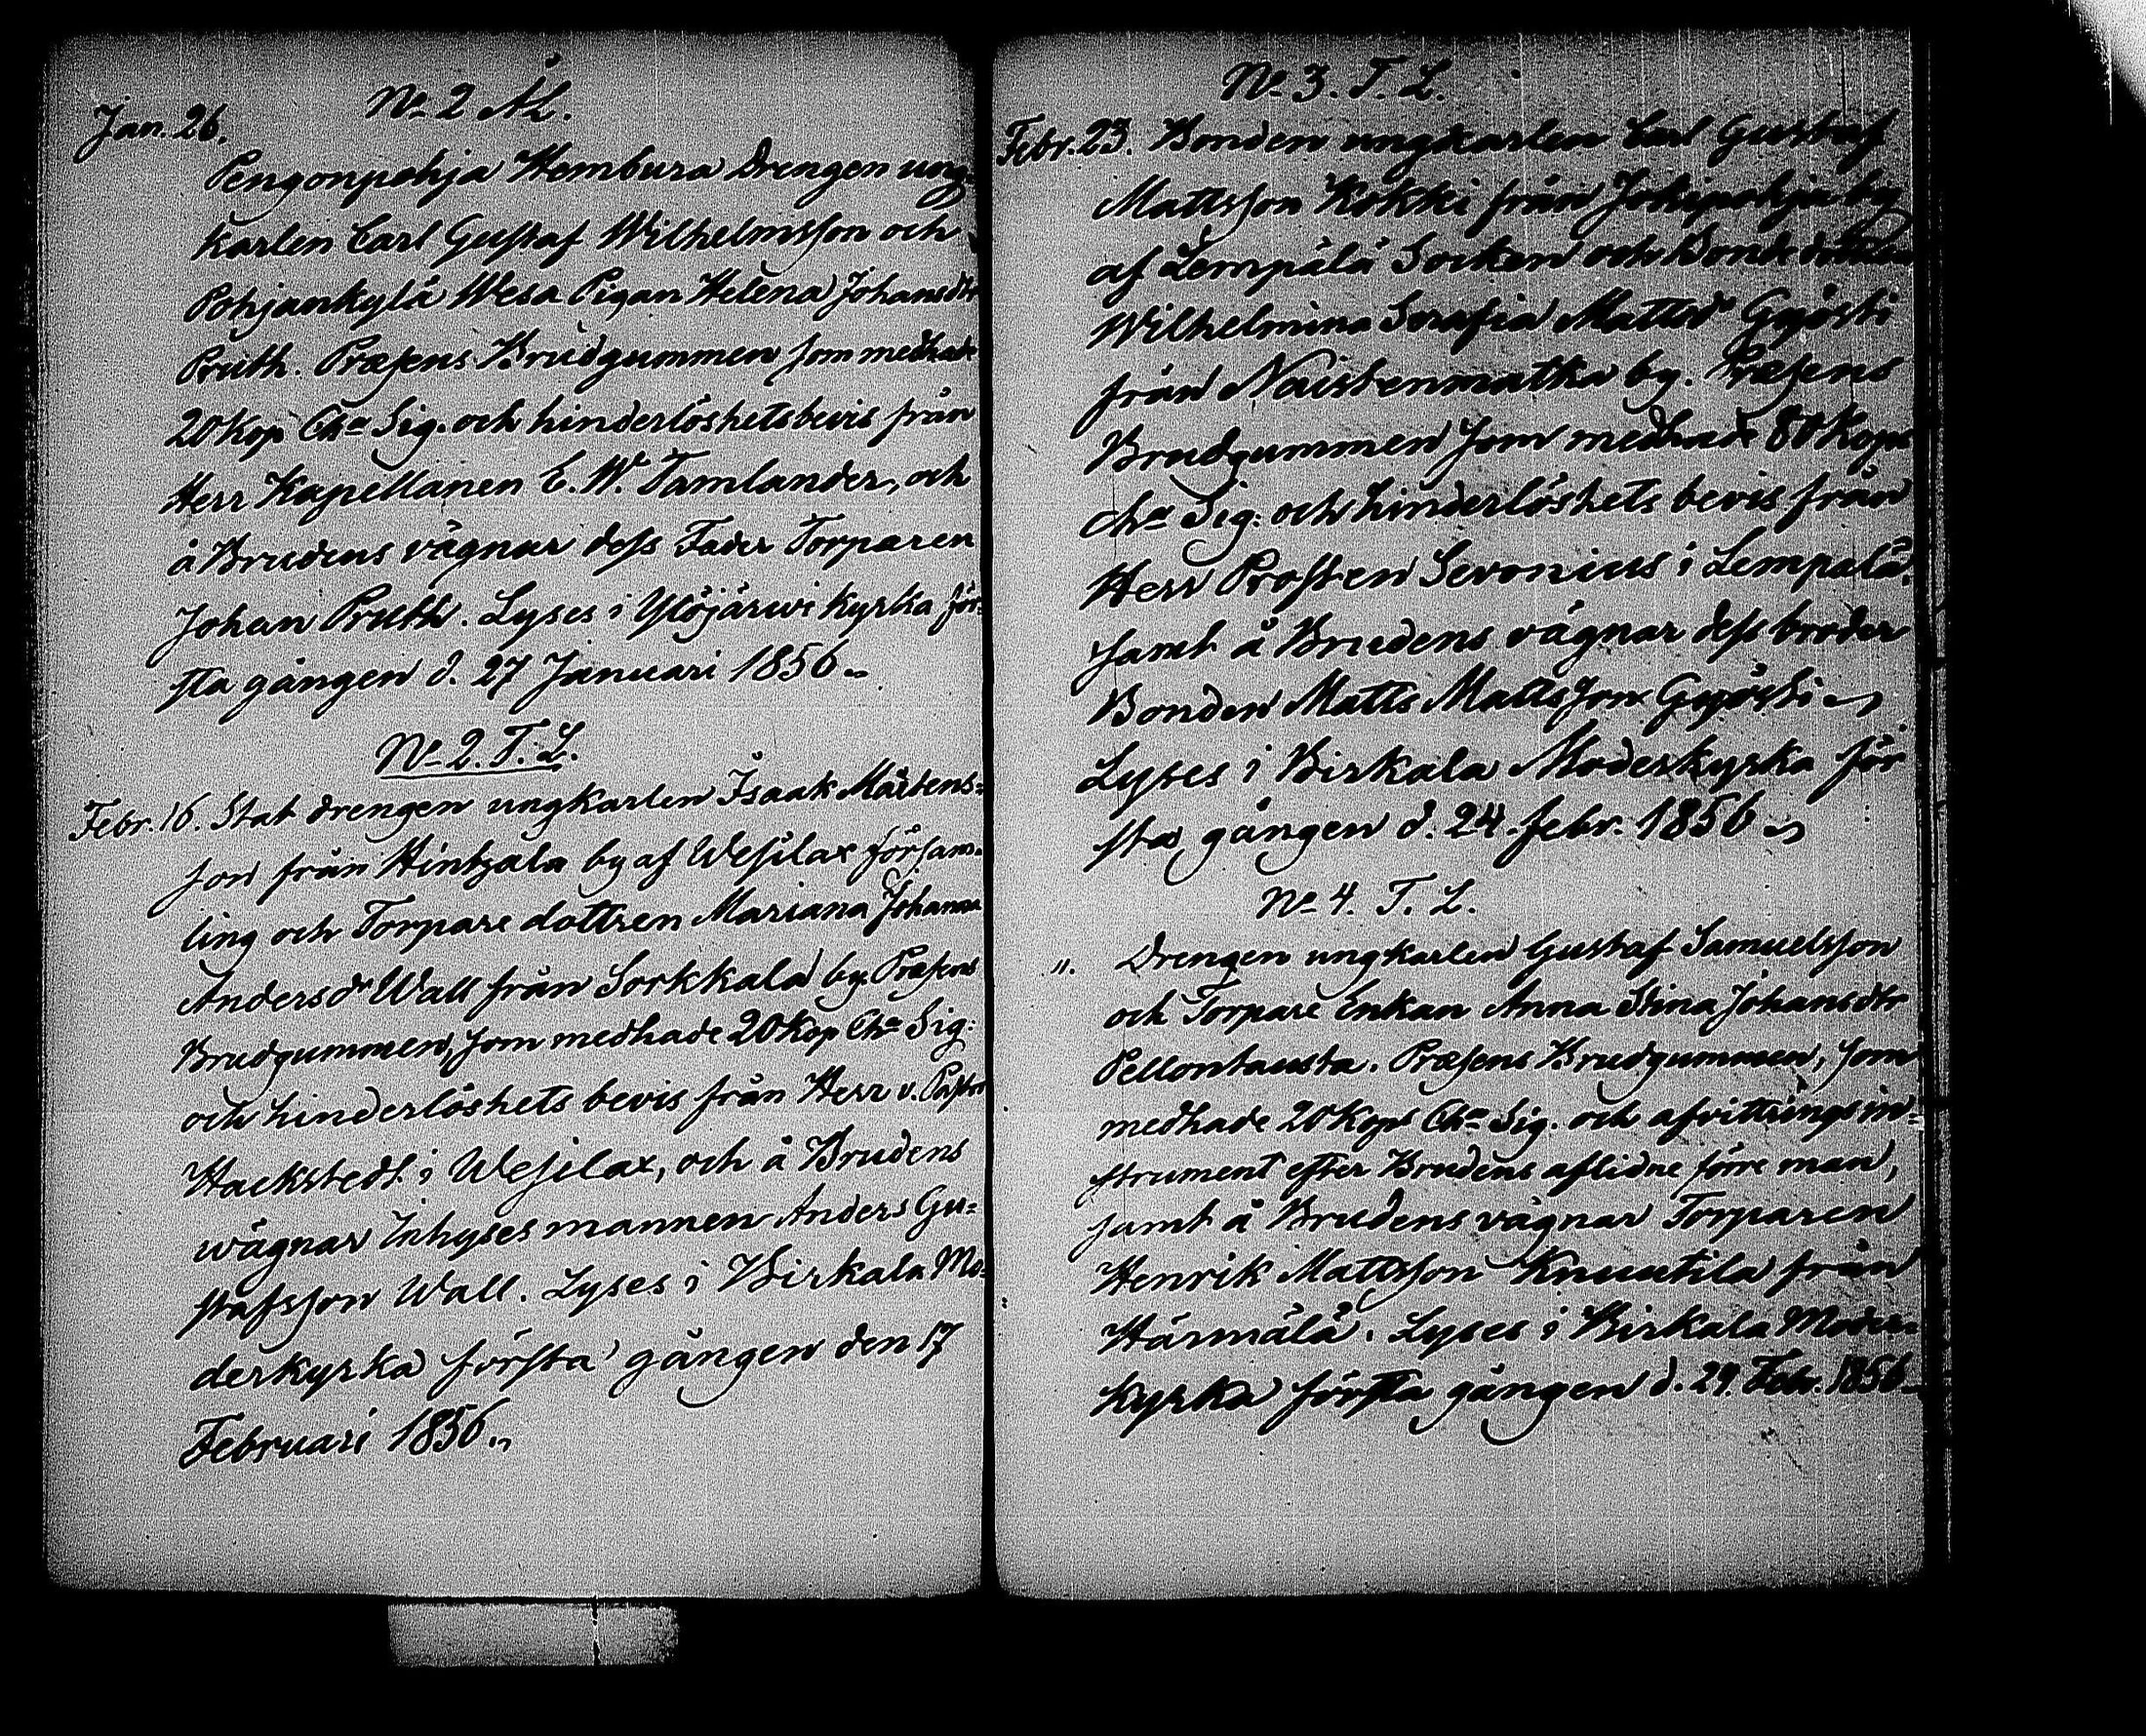 No 2 ÅL.
Jan. 26.
Pengonpohja Hembura Drengen ung-
karlen Carl Gustaf Wilhelmsson och
Pohjankylä Wesa Pigan Helena Johansdtr
Pruth. Præsens Brudgummen som medhade
20 kop Cha Sig. och hinderlöshetsbevis från
Herr Kapellanen E. W. Tamlander, och
å Brudens vägnar dess Fader Torparen
Johan Pruth. Lyses i Ylöjärwi Kyrka för-
sta gången d. 27 Januari 1856
No 2. T. L.
Febr. 16. Stat drengen ungkarlen Isaak Mårtens-
son från Hinzala by af Wesilax försam-
ling och Torpare dottren Mariana Johanna
Andersdr Wall från Sorkkala by. Præsens
Brudgummen, som medhade 20 kop Cha Sig:
och hinderlöshets bevis från Herr v. Pastor
Hackstedt i Wesilax, och å Brudens
wägnar Inhyses mannen Anders Gu-
stafsson Wall. Lyses i Birkala Mo-
derkyrka första gången den 17
Februari 1856.
No 3. T. L.
Febr. 23. Bonden ungkarlen Carl Gustaf
Mattsson Kokki från Jokipohja by
af Lempälä Socken och Bondedottren
Wilhelmina Serafia Mattsdr Gyösti
från Naistenmatka by. Præsens
Brudgummen som medhade 80 kop
Cha Sig: och hinderlöshets bevis från
Herr Prosten Sevonius i Lempälä.
samt å Brudens vägnar dess broder
Bonden Matts Mattsson Gyösti
Lyses i Birkala Moderkyrka för
sta gången d. 24. febr. 1856
No 4. T. L.
". Drengen ungkarlen Gustaf Samuelsson
och Torpare Enkan Anna Stina Johansdtr
Pellontausta. Præsens Brudgummen, som
medhade 20 Kop Cha Sig. och afvittrings in-
strument efter Brudens aflidne förre man,
samt å Brudens vägnar Torparen
Henrik Mattsson Knuutila från
Härmälä. Lyses i Birkala Moder-
kyrka första gången d. 24. Febr. 1856